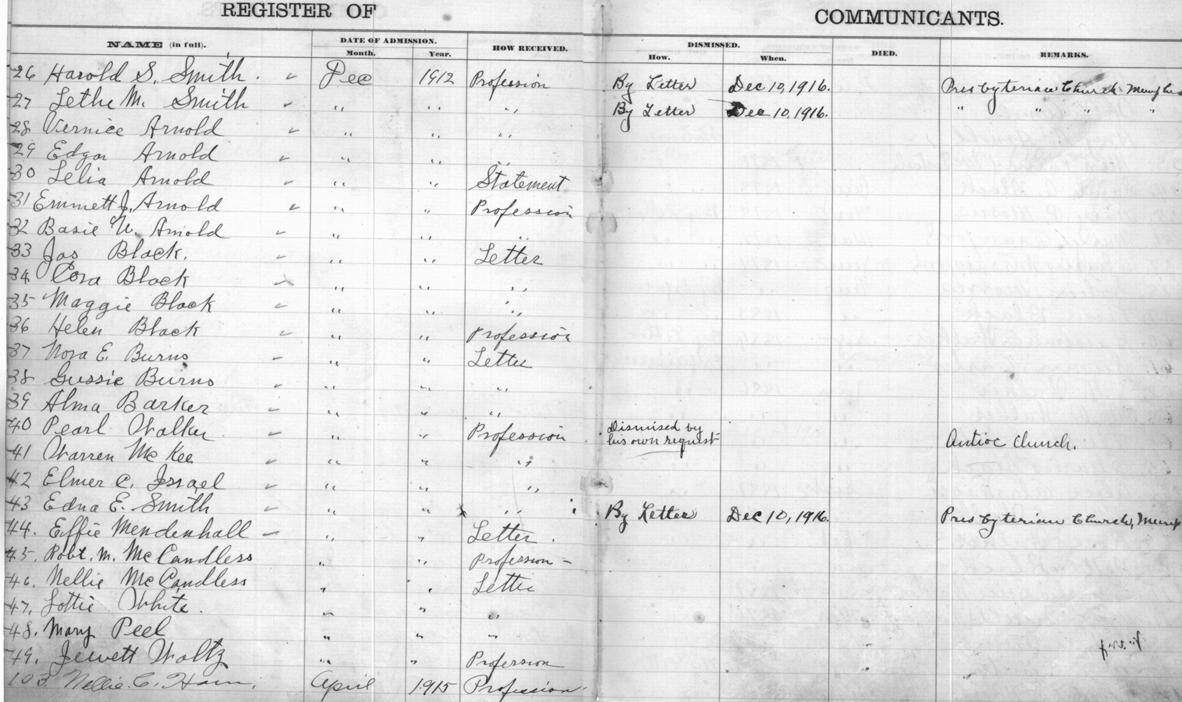 REGISTER OF COMMUNICANTS.
NAME (in full). DATE OF ADMISSION. Month. Year. HOW RECEIVED. DISMISSED. How. When. DIED. REMARKS.
26 Harold S. Smith. Dec 1912 Profession By Letter Dec 10, 1916. Presbyterian Church Memphis
27 Lethe M. Smith " " " By Letter Dec 10, 1916. " " " "
28 Vernice Arnold " " "
29 Edgar Arnold " " "
30 Lelia Arnold " " Statement
31 Emmett J. Arnold " " Profession
32 Basil W. Arnold " " "
33 Jas Black. " " Letter
34 Cora Black " " "
35 Maggie Black " " "
36 Helen Black " " Profession
37 Nora E. Burns " " Letter
38 Gussie Burns " " "
39 Alma Barker " " "
40 Pearl Walker " " Profession Dismised by his own request Antioc Church.
41 Warren McKee " " "
42 Elmer C. Israel " " "
43 Edna E. Smith " " " By Letter Dec 10, 1916. Presbyterian Church, Memp
44. Effie Mendenhall " " Letter.
45. Robt. M. McCandless " " Profession -
46. Nellie McCandless " " Letter
47. Lottie White. " " "
48. Mary Peel " " "
49. Jewett Waltz " " Profession
103. Nellie C. Ham. April 1915 Profession